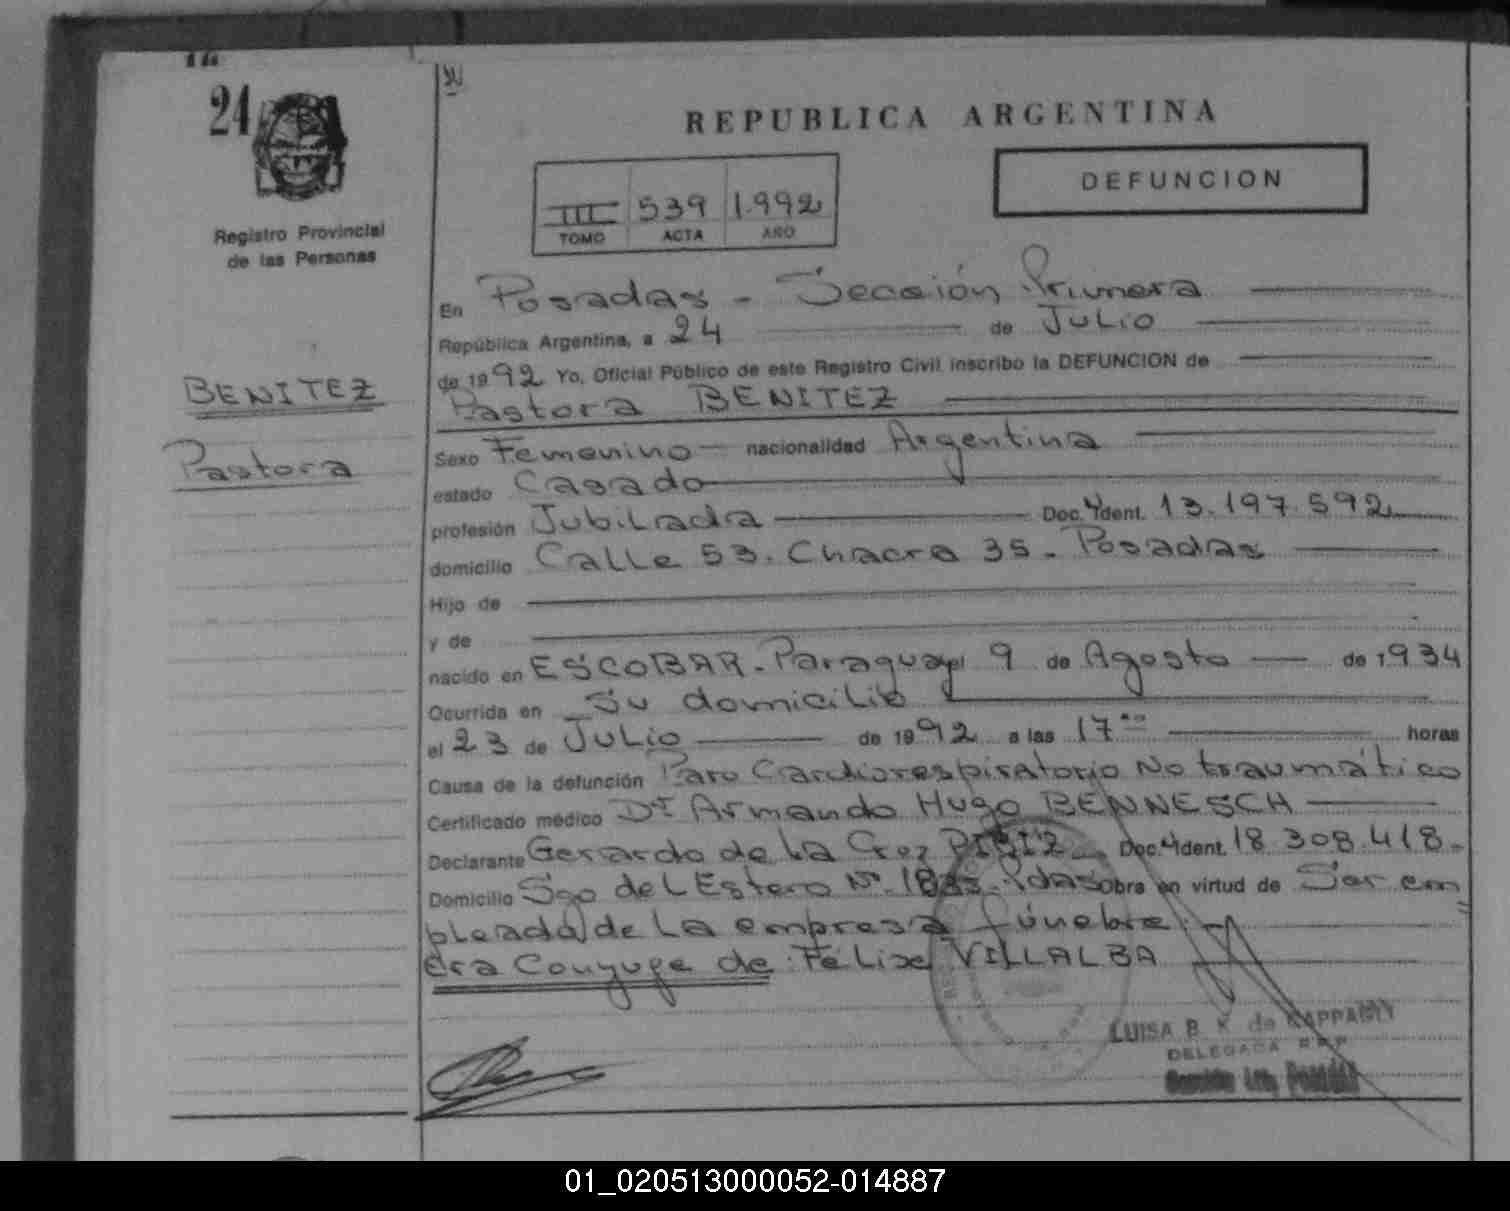 24
REPUBLICA ARGENTINA
DEFUNCION
III 539 1.992
TOMO ACTA AÑO
Registro Provincial
de las Personas
BENITEZ
Pastora
En Posadas - Sección Primera
República Argentina, a 24 de Julio
de 1992 Yo, Oficial Público de este Registro Civil inscribo la DEFUNCION de
Pastora BENITEZ
Sexo Femenino nacionalidad Argentina
estado Casado
profesión Jubilada Doc. Ident. 13.197.592
domicilio Calle 53. Chacra 35. Posadas
Hijo de
y de
nacido en ESCOBAR. Paraguay el 9 de Agosto de 1934
Ocurrida en Su domicilio
el 23 de Julio de 1992 a las 17 horas
Causa de la defunción Paro Cardiorespiratorio No traumático
Certificado médico Dr. Armando Hugo BENNESCH
Declarante Gerardo de la Doc. Ident. 18.308.418
Domicilio Sgo del Estero Nº Pdas Obra en virtud de Ser em
pleado de la empresa fúnebre.
Era Conyuge de: Félix VILLALBA
LUISA B. K. de
DELEGADA R.P.P
01_020513000052-014887